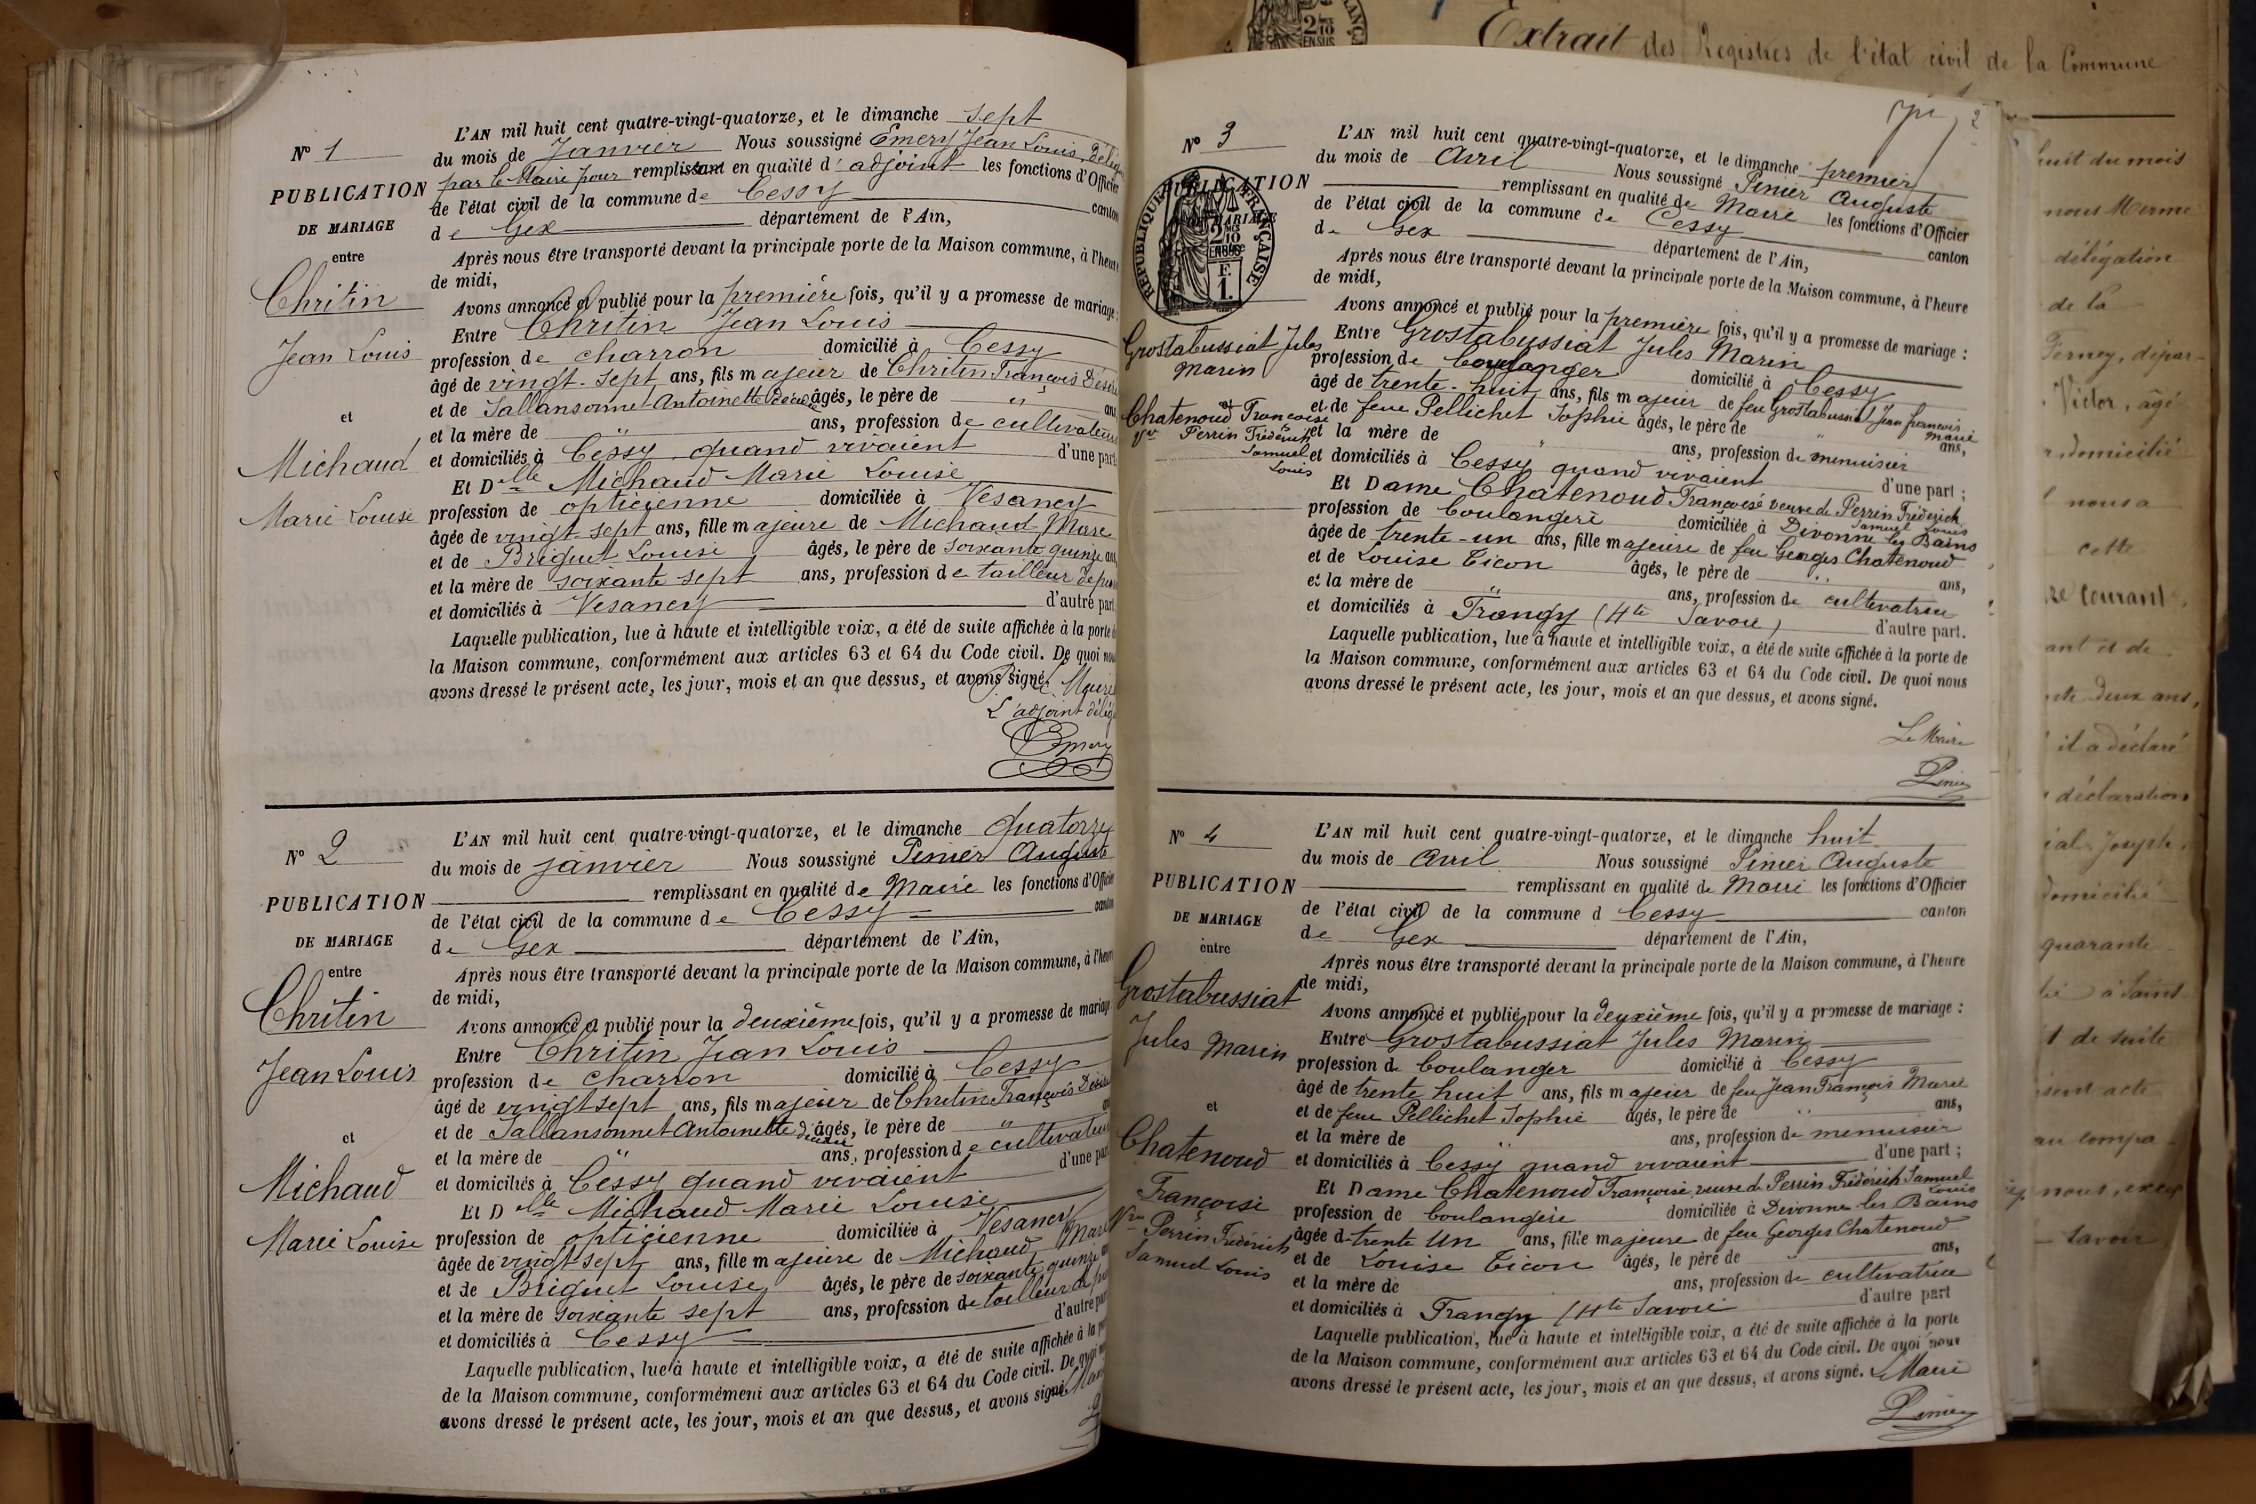 Nº 1
PUBLICATION
DE MARIAGE
entre
Chritin
Jean Louis
et
Michaud
Marie Louise
L'AN mil huit cent quatre-vingt-quatorze, et le dimanche sept
du mois de Janvier Nous soussigné Emery Jean Louis, Délégué
par le Maire pour remplissant en qualité d'adjoint les fonctions d'Officier
de l'état civil de la commune de Cessy canton
de Gex département de l'Ain,
Après nous être transporté devant la principale porte de la Maison commune, à l'heure
de midi,
Avons annoncé et publié pour la première fois, qu'il y a promesse de mariage :
Entre Chritin Jean Louis
profession de charron domicilié à Cessy
âgé de vingt-sept ans, fils majeur de Chritin François Désiré
et de Sallansonnet Antoinette décédés âgés, le père de " ans
et la mère de " ans, profession de cultivateurs
et domiciliés à Cessy quand vivaient d'une part
Et Delle Michaud Marie Louise
profession de opticienne domiciliée à Vesancy
âgée de vingt-sept ans, fille majeure de Michaud Marc
et de Briquet Louise âgés, le père de soixante quinze ans,
et la mère de soixante sept ans, profession de tailleur de
et domiciliés à Vesancy d'autre part
Laquelle publication, lue à haute et intelligible voix, a été de suite affichée à la porte de
la Maison commune, conformément aux articles 63 et 64 du Code civil. De quoi nous
avons dressé le présent acte, les jour, mois et an que dessus, et avons signé. Maire
L'adjoint délégué
Emery
Nº 2
PUBLICATION
DE MARIAGE
entre
Chritin
Jean Louis
et
Michaud
Marie Louise
L'AN mil huit cent quatre-vingt-quatorze, et le dimanche quatorze
du mois de janvier Nous soussigné Pinier Auguste
remplissant en qualité de Maire les fonctions d'Officier
de l'état civil de la commune de Cessy canton
de Gex département de l'Ain,
Après nous être transporté devant la principale porte de la Maison commune, à l'heure
de midi,
Avons annoncé et publié pour la deuxième fois, qu'il y a promesse de mariage
Entre Chritin Jean Louis
profession de charron domicilié à Cessy
âgé de vingt sept ans, fils majeur de Chritin François Désiré
et de Sallansonnet Antoinette décédés âgés, le père de " ans
et la mère de " ans, profession de cultivateurs
et domiciliés à Cessy quand vivaient d'une part
Et Delle Michaud Marie Louise
profession de opticienne domiciliée à Vesancy
âgée de vingt sept ans, fille majeure de Michaud Marc
et de Briquet Louise âgés, le père de soixante quinze ans
et la mère de soixante sept ans, profession de tailleur de
et domiciliés à Cessy d'autre part
Laquelle publication, lue à haute et intelligible voix, a été de suite affichée à la porte
de la Maison commune, conformément aux articles 63 et 64 du Code civil. De quoi nous
avons dressé le présent acte, les jour, mois et an que dessus, et avons signé.
Nº 3
PUBLICATION
DE MARIAGE
RÉPUBLIQUE FRANÇAISE
2/10 EN SUS
F. 1.
Grostabussiat Jules
Marin
et
Chatenoud Françoise
Vve Perrin Frédérich
Samuel
Louis
L'AN mil huit cent quatre-vingt-quatorze, et le dimanche premier
du mois de Avril Nous soussigné Pinier Auguste
remplissant en qualité de Maire les fonctions d'Officier
de l'état civil de la commune de Cessy canton
de Gex département de l'Ain,
Après nous être transporté devant la principale porte de la Maison commune, à l'heure
de midi,
Avons annoncé et publié pour la première fois, qu'il y a promesse de mariage :
Entre Grostabussiat Jules Marin
profession de boulanger domicilié à Cessy
âgé de trente-huit ans, fils majeur de feu Grostabussiat Jean François Marie
et de feue Pellichet Sophie âgés, le père de " ans,
et la mère de " ans, profession de menuisier
et domiciliés à Cessy quand vivaient d'une part ;
Et Dame Chatenoud Françoise veuve de Perrin Frédérich Samuel Louis
profession de boulangère domiciliée à Divonne les Bains
âgée de trente-un ans, fille majeure de feu Georges Chatenoud
et de Louise Ticon âgés, le père de " ans,
et la mère de " ans, profession de cultivatrice
et domiciliés à Frangy (Hte Savoie) d'autre part.
Laquelle publication, lue à haute et intelligible voix, a été de suite affichée à la porte de
la Maison commune, conformément aux articles 63 et 64 du Code civil. De quoi nous
avons dressé le présent acte, les jour, mois et an que dessus, et avons signé.
Le Maire
Pinier
Nº 4
PUBLICATION
DE MARIAGE
entre
Grostabussiat
Jules Marin
et
Chatenoud
Françoise
Vve Perrin Frédérich
Samuel Louis
L'AN mil huit cent quatre-vingt-quatorze, et le dimanche huit
du mois de Avril Nous soussigné Pinier Auguste
remplissant en qualité de Maire les fonctions d'Officier
de l'état civil de la commune d Cessy canton
de Gex département de l'Ain,
Après nous être transporté devant la principale porte de la Maison commune, à l'heure
de midi,
Avons annoncé et publié pour la deuxième fois, qu'il y a promesse de mariage :
Entre Grostabussiat Jules Marin
profession de boulanger domicilié à Cessy
âgé de trente huit ans, fils majeur de feu Jean François Marie
et de feue Pellichet Sophie âgés, le père de " ans,
et la mère de " ans, profession de menuisier
et domiciliés à Cessy quand vivaient d'une part ;
Et Dame Chatenoud Françoise, veuve de Perrin Frédérich Samuel Louis
profession de boulangère domiciliée à Divonne les Bains
âgée de trente un ans, fille majeure de feu Georges Chatenoud
et de Louise Ticon âgés, le père de " ans,
et la mère de ans, profession de cultivatrice
et domiciliés à Frangy (Hte Savoie d'autre part
Laquelle publication, lue à haute et intelligible voix, a été de suite affichée à la porte
de la Maison commune, conformément aux articles 63 et 64 du Code civil. De quoi nous
avons dressé le présent acte, les jour, mois et an que dessus, et avons signé. Le Maire
Pinier
2/10
EN SUS
Extrait des Registres de l'état civil de la Commune
huit du mois
nous Merme
délégation
de la
Ferney, dépar-
Victor, âgé
domicilié
nous a
cette
courant,
ant et de
deux ans,
il a déclaré
déclaration
Joseph,
domicilié
quarante
à Saint
de suite
acte
compa-
nous,
savoir